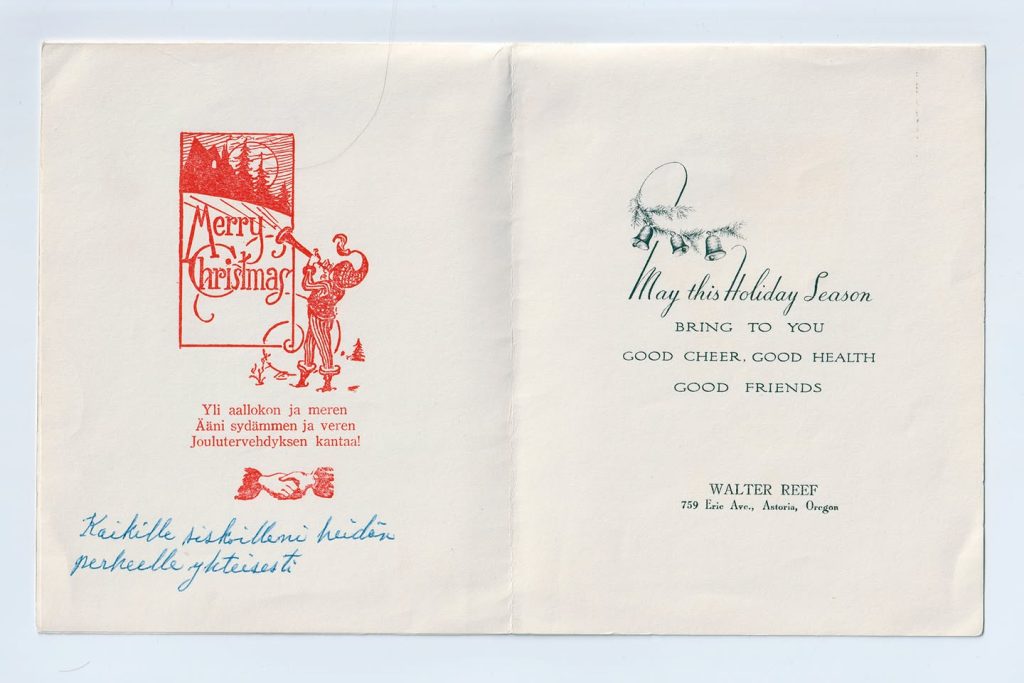 Merry
Christmas
Yli aallokon ja meren
Ääni sydämmen ja veren
Joulutervehdyksen kantaa!
Kaikille siskoilleni heidän
perheelle yhteisesti
May this Holiday Season
BRING TO YOU
GOOD CHEER, GOOD HEALTH
GOOD FRIENDS
WALTER REEF
759 Erie Ave., Astoria, Oregon